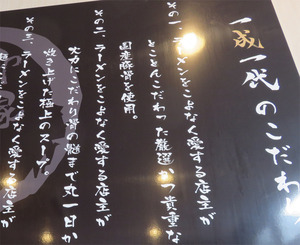 一成一代のこだわり
その一、ラーメンをこよなく愛する店主が
とことんこだわった厳選かつ貴重な
国産豚骨を使用。
その二、ラーメンをこよなく愛する店主が
火力にこだわり骨の髄まで丸一日か
炊き上げた極上のスープ。
その三、ラーメンをこよなく愛する店主が